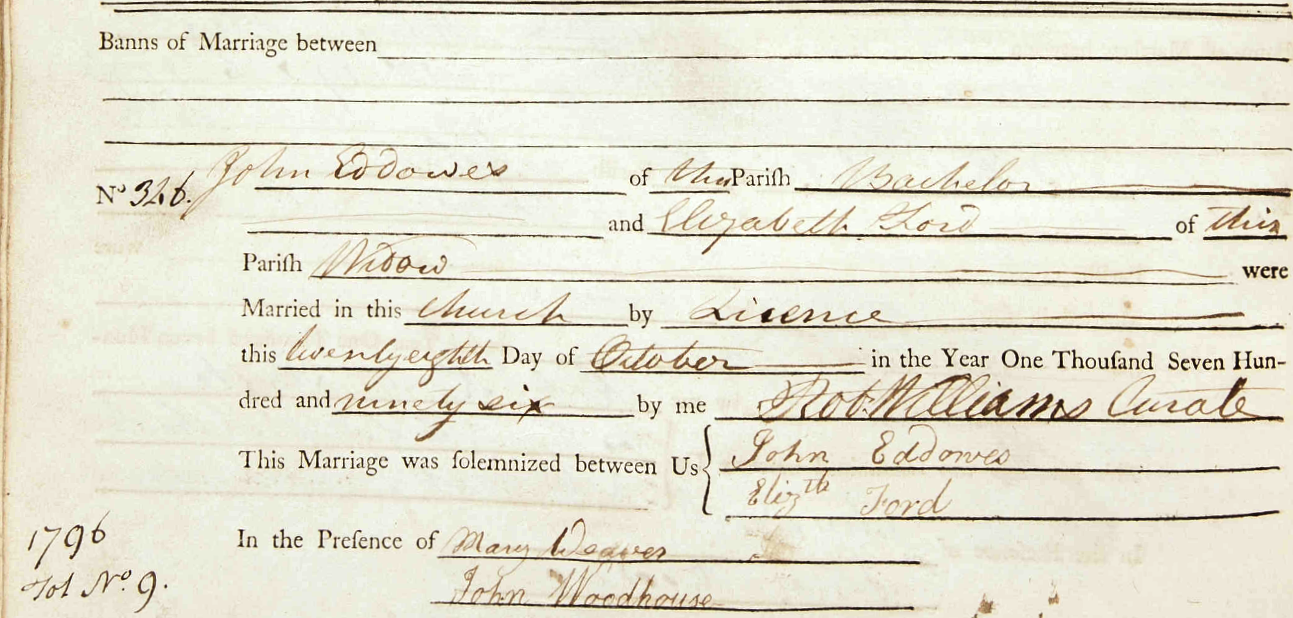 Banns of Marriage between
Nº 326. John Eddowes of this Pariſh Bachelor
and Elizabeth Ford of this
Pariſh Widow were
Married in this Church by Licence
this twenty eighth Day of October in the Year One Thouſand Seven Hun-
dred and ninety six by me Rob. Williams Curate
This Marriage was ſolemnized between Us John Eddowes
Elizth Ford
In the Preſence of Mary Weaver
John Woodhouse
1796
Tot Nº 9.